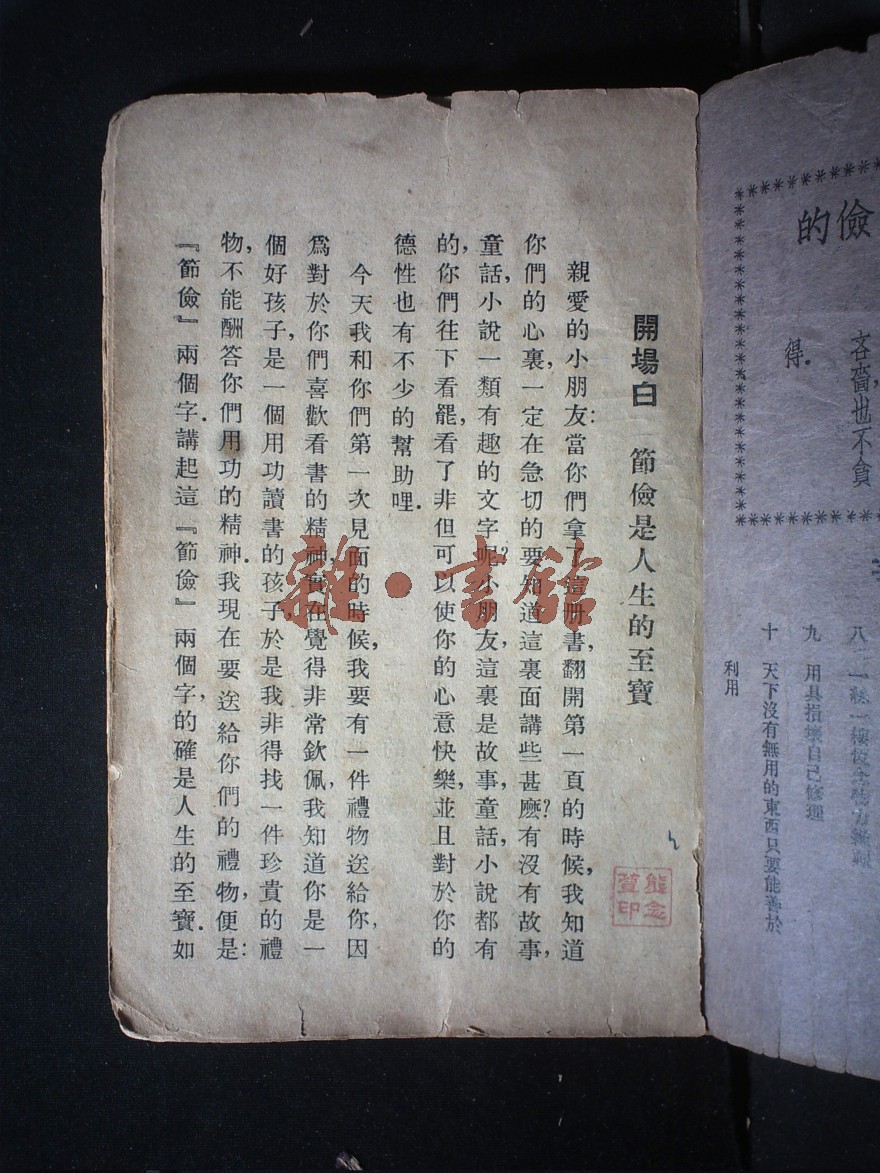 儉的
吝嗇,也不貪
得.
九 用具損壞自己修理
十 天下沒有無用的東西只要能善於
利用
開場白 節儉是人生的至寶
親愛的小朋友:當你們拿了這册書,翻開第一頁的時候,我知道
你們的心裏,一定在急切的要知道這裏面講些甚麽?有沒有故事,
童話,小說一類有趣的文字呢?小朋友,這裏是故事,童話,小說都有
的,你們往下看罷,看了非但可以使你的心意快樂,並且對於你的
德性也有不少的幫助哩.
今天我和你們第一次見面的時候,我要有一件禮物送給你,因
爲對於你們喜歡看書的精神,實在覺得非常欽佩,我知道你是一
個好孩子,是一個用功讀書的孩子,於是我非得找一件珍貴的禮
物,不能酬答你們用功的精神.我現在要送給你們的禮物,便是:
『節儉』兩個字.講起這『節儉』兩個字,的確是人生的至寶.如
雜·書館
熊念萱印